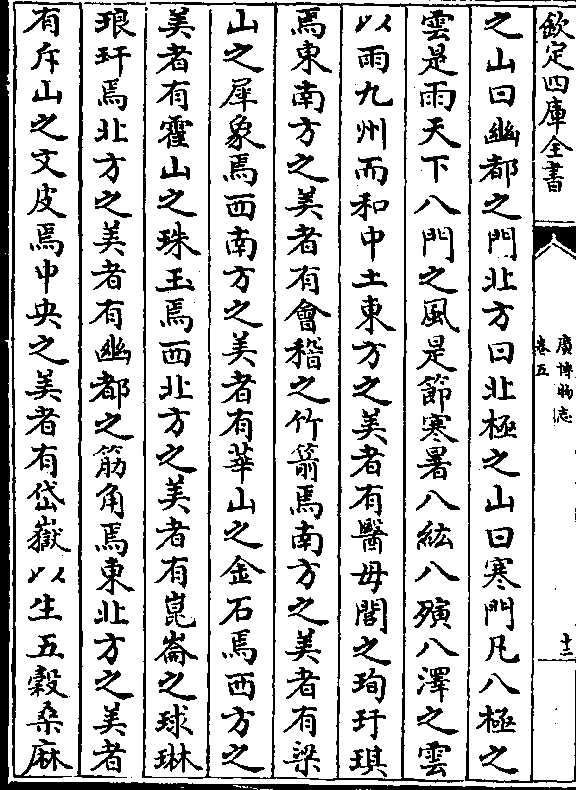 欽定四庫全書
廣博物志
卷五
十二
之山曰幽都之門北方曰北極之山曰寒門凡八極之
雲是雨天下八門之風是節寒暑八紘八殥八澤之雲
以雨九州而和中土東方之美者有醫毋閭之珣玗琪
焉東南方之美者有會稽之竹箭焉南方之美者有梁
山之犀象焉西南方之美者有華山之金石焉西方之
美者有霍山之珠玉焉西北方之美者有崑崙之球琳
琅玕焉北方之美者有幽都之筋角焉東北方之美者
有斥山之文皮焉中央之美者有岱嶽以生五穀桑麻